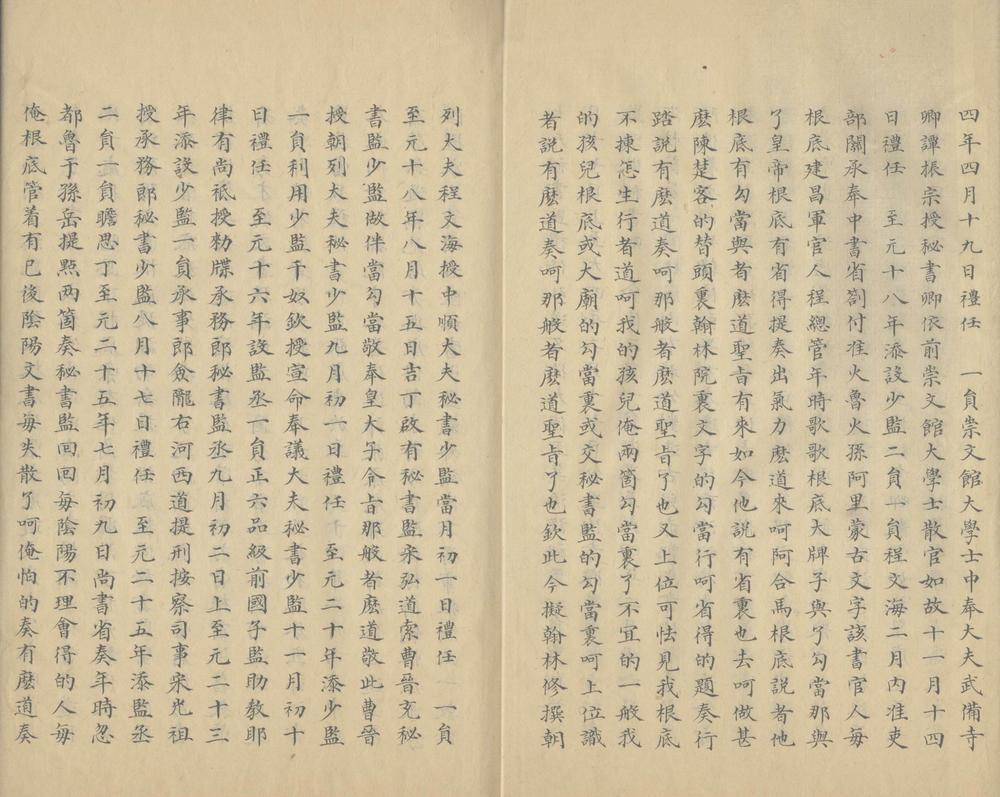 四年四月十九日禮任　一負崇文館大學士中奉大夫武備寺
卿譚振宗授秘書卿依前崇文館大學士散官如故十一月十四
日禮任　至元十八年添設少監二負一負程文海二月內准吏
部關承奉中書省劄付准火魯火孫阿里蒙古文字該書官人每
根底建昌軍官人程總管年時歌歌根底大牌子與了勾當那與
了皇帝根底有省得提奏出氣力麽道來呵阿合馬根底説者他
根底有勾當與者麽道聖旨有來如今他説有省裏也去呵做甚
麽陳楚客的替頭裏翰林院裏文字的勾當行呵省得的題奏行
踏説有麽道奏呵那般者麽道聖旨了也又上位可怯見我根底
不揀怎生行者道呵我的孩兒俺兩箇勾當裏了不宜的一般我
的孩兒根底或大廟的勾當裏或交秘書監的勾當裏呵上位識
者説有麽道奏呵那般者麽道聖旨了也欽此今擬翰林修撰朝
列大夫程文海授中順大夫秘書少監當月初一日禮任　一負
至元十八年八月十五日吉丁啟有秘書監宋弘道索曹晉充秘
書監少監做伴當勾當敬奉皇太子令旨那般者麽道敬此曹晉
授朝列大夫秘書少監九月初一日禮任　至元二十年添少監
一負利用少監千奴欽授宣命奉議大夫秘書少監十一月初十
日禮任　至元十六年設監丞一負正六品級前國子監助教耶
律有尚祗授勑牒承務郎秘書監丞九月初二日上至元二十三
年添設少監一負承事郎僉隴右河西道提刑按察司事宋光祖
授承務郎秘書少監八月十七日禮任　至元二十五年添監丞
二負一負贍思丁至元二十五年七月初九日尚書省奏年時忽
都魯于孫岳提㸃两箇奏秘書監回回每陰陽不理會得的人每
俺根底管着有已後陰陽文書每失散了呵俺怕的奏有麽道奏